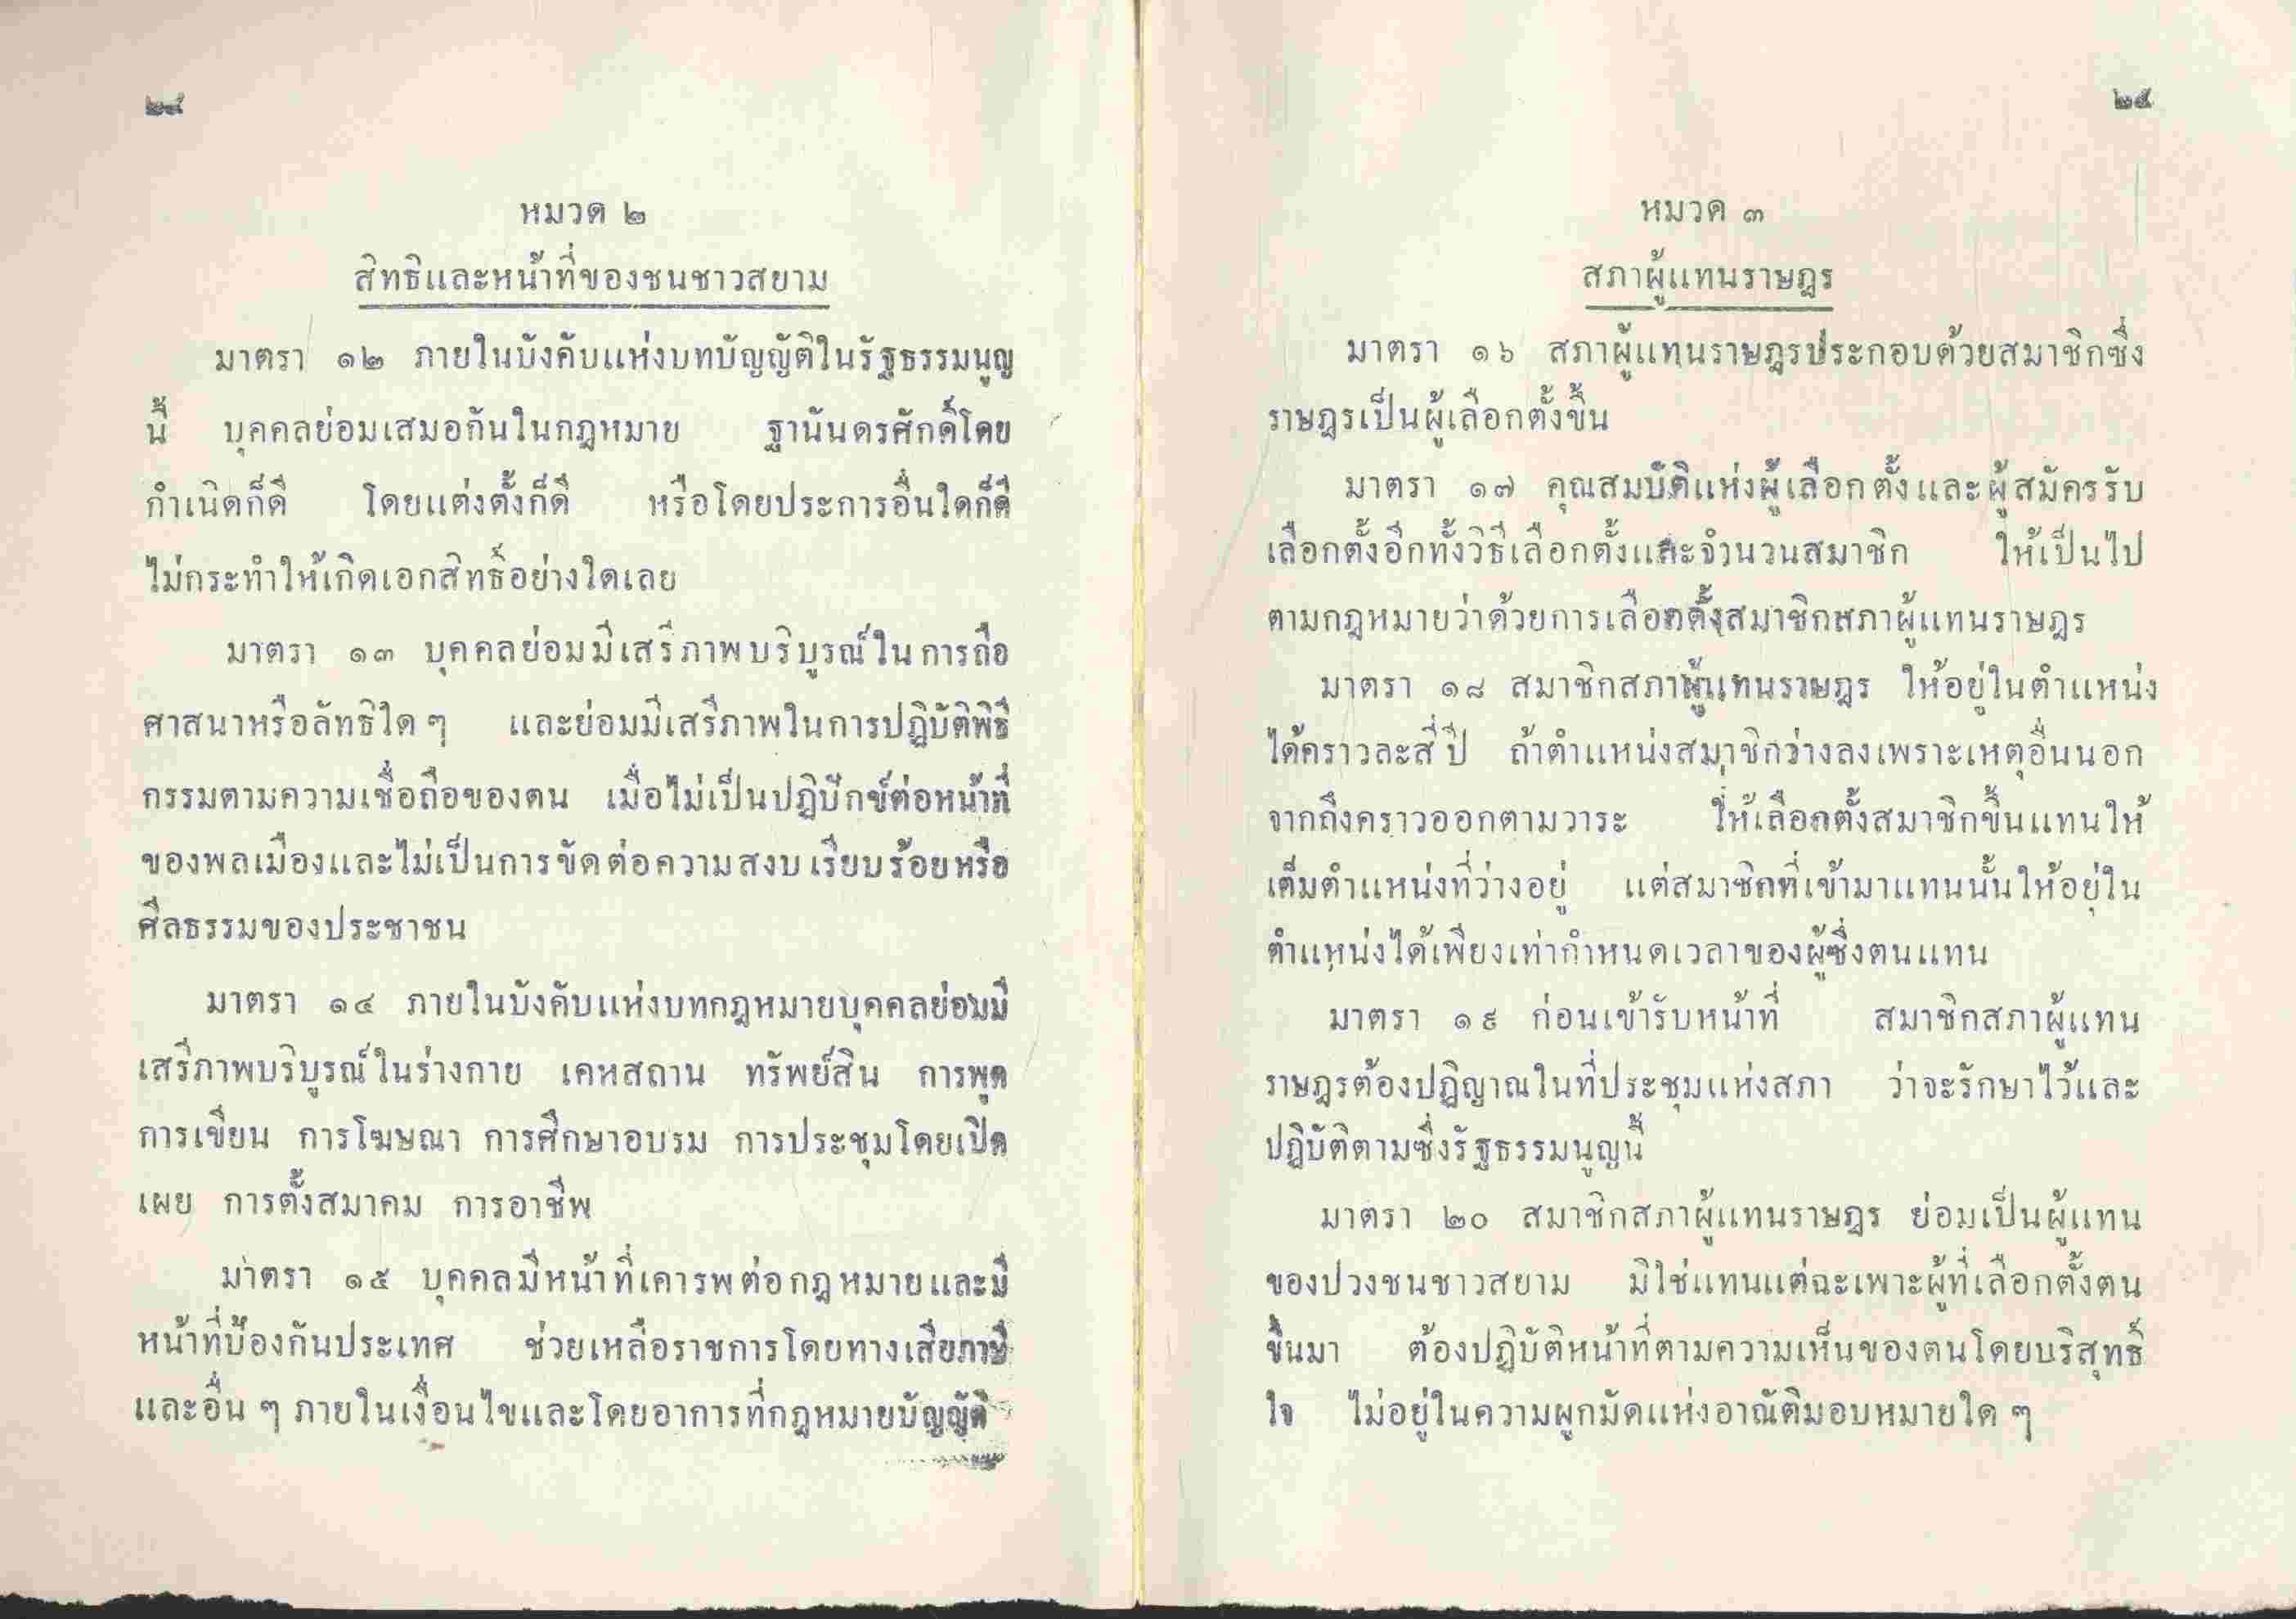 ๒๔
หมวด ๒
สิทธิและหน้าที่ของชนชาวสยาม
มาตรา ๑๒ ภายในบังคับแห่งบทบัญญัติในรัฐธรรมนูญ
นี้ บุคคลย่อมเสมอกันในกฎหมาย ฐานันดรศักดิ์โดย
กำเนิดก็ดี โดยแต่งตั้งก็ดี หรือโดยประการอื่นใดก็ดี
ไม่กระทำให้เกิดเอกสิทธิ์อย่างใดเลย
มาตรา ๑๓ บุคคลย่อมมีเสรีภาพบริบูรณ์ในการถือ
ศาสนาหรือลัทธิใด ๆ และย่อมมีเสรีภาพในการปฏิบัติพิธี
กรรมตามความเชื่อถือของตน เมื่อไม่เป็นปฏิปักข์ต่อหน้าที่
ของพลเมืองและไม่เป็นการขัดต่อความสงบเรียบร้อยหรือ
ศีลธรรมของประชาชน
มาตรา ๑๔ ภายในบังคับแห่งบทกฎหมายบุคคลย่อมมี
เสรีภาพบริบูรณ์ในร่างกาย เคหสถาน ทรัพย์สิน การพูด
การเขียน การโฆษณา การศึกษาอบรม การประชุมโดยเปิด
เผย การตั้งสมาคม การอาชีพ
มาตรา ๑๕ บุคคลมีหน้าที่เคารพต่อกฎหมายและมี
หน้าที่ป้องกันประเทศ ช่วยเหลือราชการโดยทางเสียภาษี
และอื่น ๆ ภายในเงื่อนไขและโดยอาการที่กฎหมายบัญญัติ
๒๕
หมวด ๓
สภาผู้แทนราษฎร
มาตรา ๑๖ สภาผู้แทนราษฎรประกอบด้วยสมาชิกซึ่ง
ราษฎรเป็นผู้เลือกตั้งขึ้น
มาตรา ๑๗ คุณสมบัติแห่งผู้เลือกตั้งและผู้สมัครรับ
เลือกตั้งอีกทั้งวิธีเลือกตั้งและจำนวนสมาชิก ให้เป็นไป
ตามกฎหมายว่าด้วยการเลือกตั้งสมาชิกสภาผู้แทนราษฎร
มาตรา ๑๘ สมาชิกสภาผู้แทนราษฎร ให้อยู่ในตำแหน่ง
ได้คราวละสี่ปี ถ้าตำแหน่งสมาชิกว่างลงเพราะเหตุอื่นนอก
จากถึงคราวออกตามวาระ ให้เลือกตั้งสมาชิกขึ้นแทนให้
เต็มตำแหน่งที่ว่างอยู่ แต่สมาชิกที่เข้ามาแทนนั้นให้อยู่ใน
ตำแหน่งได้เพียงเท่ากำหนดเวลาของผู้ซึ่งตนแทน
มาตรา ๑๙ ก่อนเข้ารับหน้าที่ สมาชิกสภาผู้แทน
ราษฎรต้องปฏิญาณในที่ประชุมแห่งสภา ว่าจะรักษาไว้และ
ปฏิบัติตามซึ่งรัฐธรรมนูญนี้
มาตรา ๒๐ สมาชิกสภาผู้แทนราษฎร ย่อมเป็นผู้แทน
ของปวงชนชาวสยาม มิใช่แทนแต่ฉะเพาะผู้ที่เลือกตั้งตน
ขึ้นมา ต้องปฏิบัติหน้าที่ตามความเห็นของตนโดยบริสุทธิ์
ใจ ไม่อยู่ในความผูกมัดแห่งอาณัติมอบหมายใด ๆ